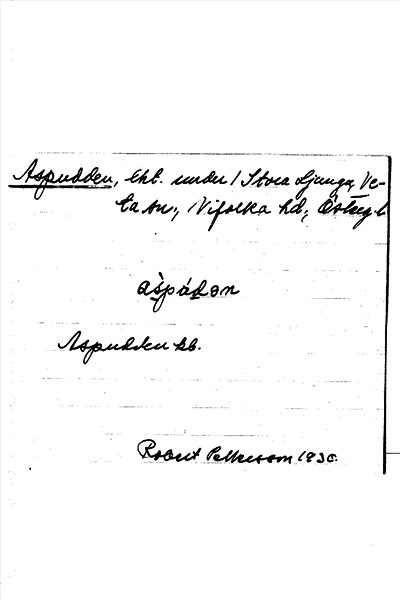 Aspudden, lht. under 1 Stora Ljunga, Ve-
ta sn., Vifolka hd., Östergl.
aspúdən
Aspudden kb.
Robert Pettersson 1930.